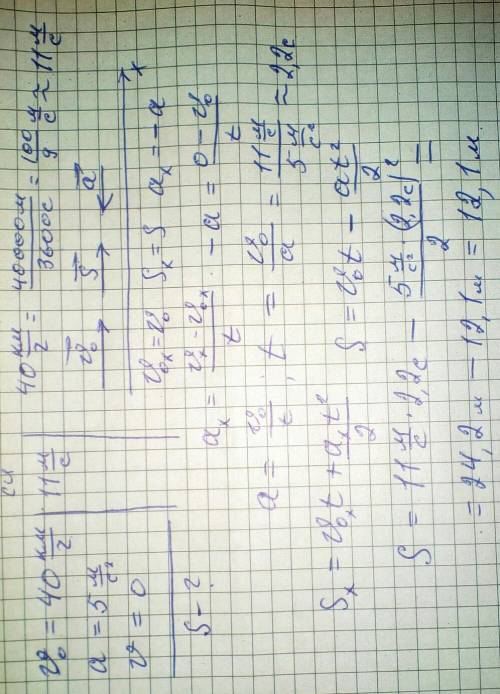 СИ
v₀ = 40 км/г | 11 м/с
a = 5 м/с²
v = 0
S - ?
40 км/г = 40000м/3600с = 100/9 м/с ≈ 11 м/с
v₀ S a
x
v₀ₓ = v₀ Sₓ = S aₓ = -a
aₓ = (vₓ - v₀ₓ)/t . -a = (0 - v₀)/t
a = v₀/t , t = v₀/a = 11 м/с / 5 м/с² ≈ 2,2с
Sₓ = v₀ₓt + aₓt²/2 S = v₀t - at²/2
S = 11 м/с · 2,2с - 5 м/с² · (2,2с)²/2 =
= 24,2м - 12,1м = 12,1м